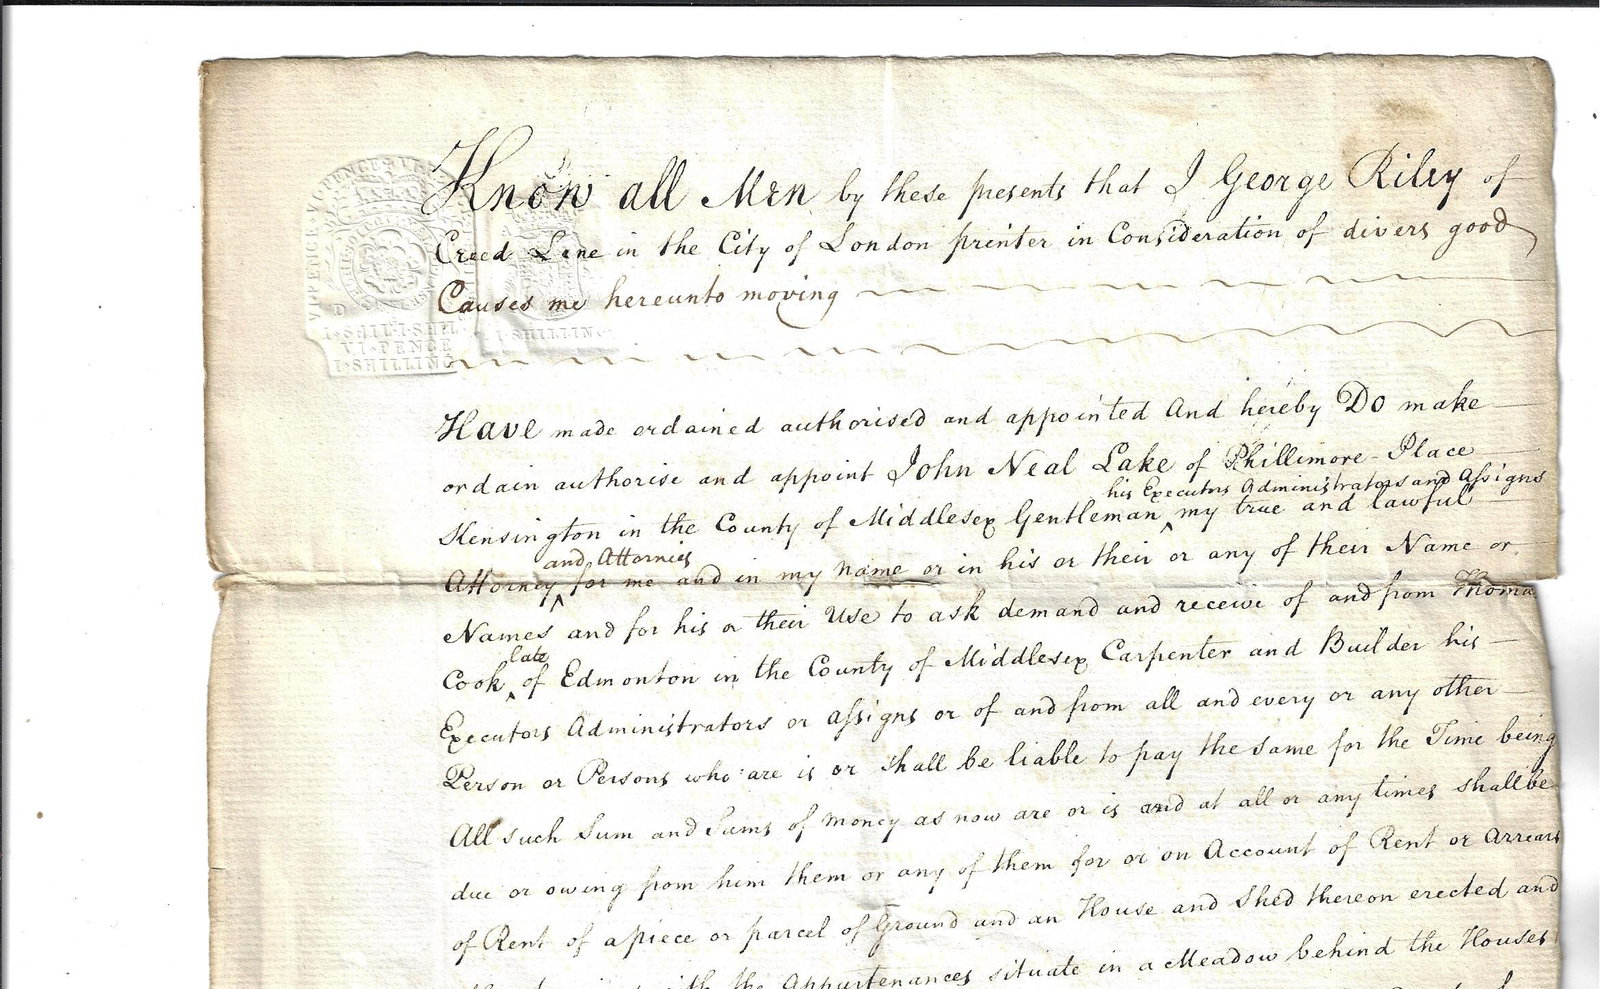 Know all Men by these presents that I George Riley of
Creed Lane in the City of London printer in Consideration of divers good
Causes me hereunto moving
I·SHIL·I·SHIL
VI·PENCE
I·SHILLING
I·SHILLING
Have made ordained authorised and appointed And hereby Do make
ordain authorise and appoint John Neal Lake of Phillimore-Place
his Executors Administrators and Assigns
Kensington in the County of Middlesex Gentleman ^ my true and lawful
and Attornies
Attorney ^ for me and in my name or in his or their or any of their Name or
Names and for his or their Use to ask demand and receive of and from Thomas
late
Cook ^ of Edmonton in the County of Middlesex Carpenter and Builder his
Executors Administrators or assigns or of and from all and every or any other
Person or Persons who are is or shall be liable to pay the same for the Time being
All such Sum and Sums of money as now are or is and at all or any times shall be
due or owing from him them or any of them for or on Account of Rent or Arrears
of Rent of a piece or parcel of Ground and an House and Shed thereon erected and
the Appurtenances situate in a Meadow behind the Houses